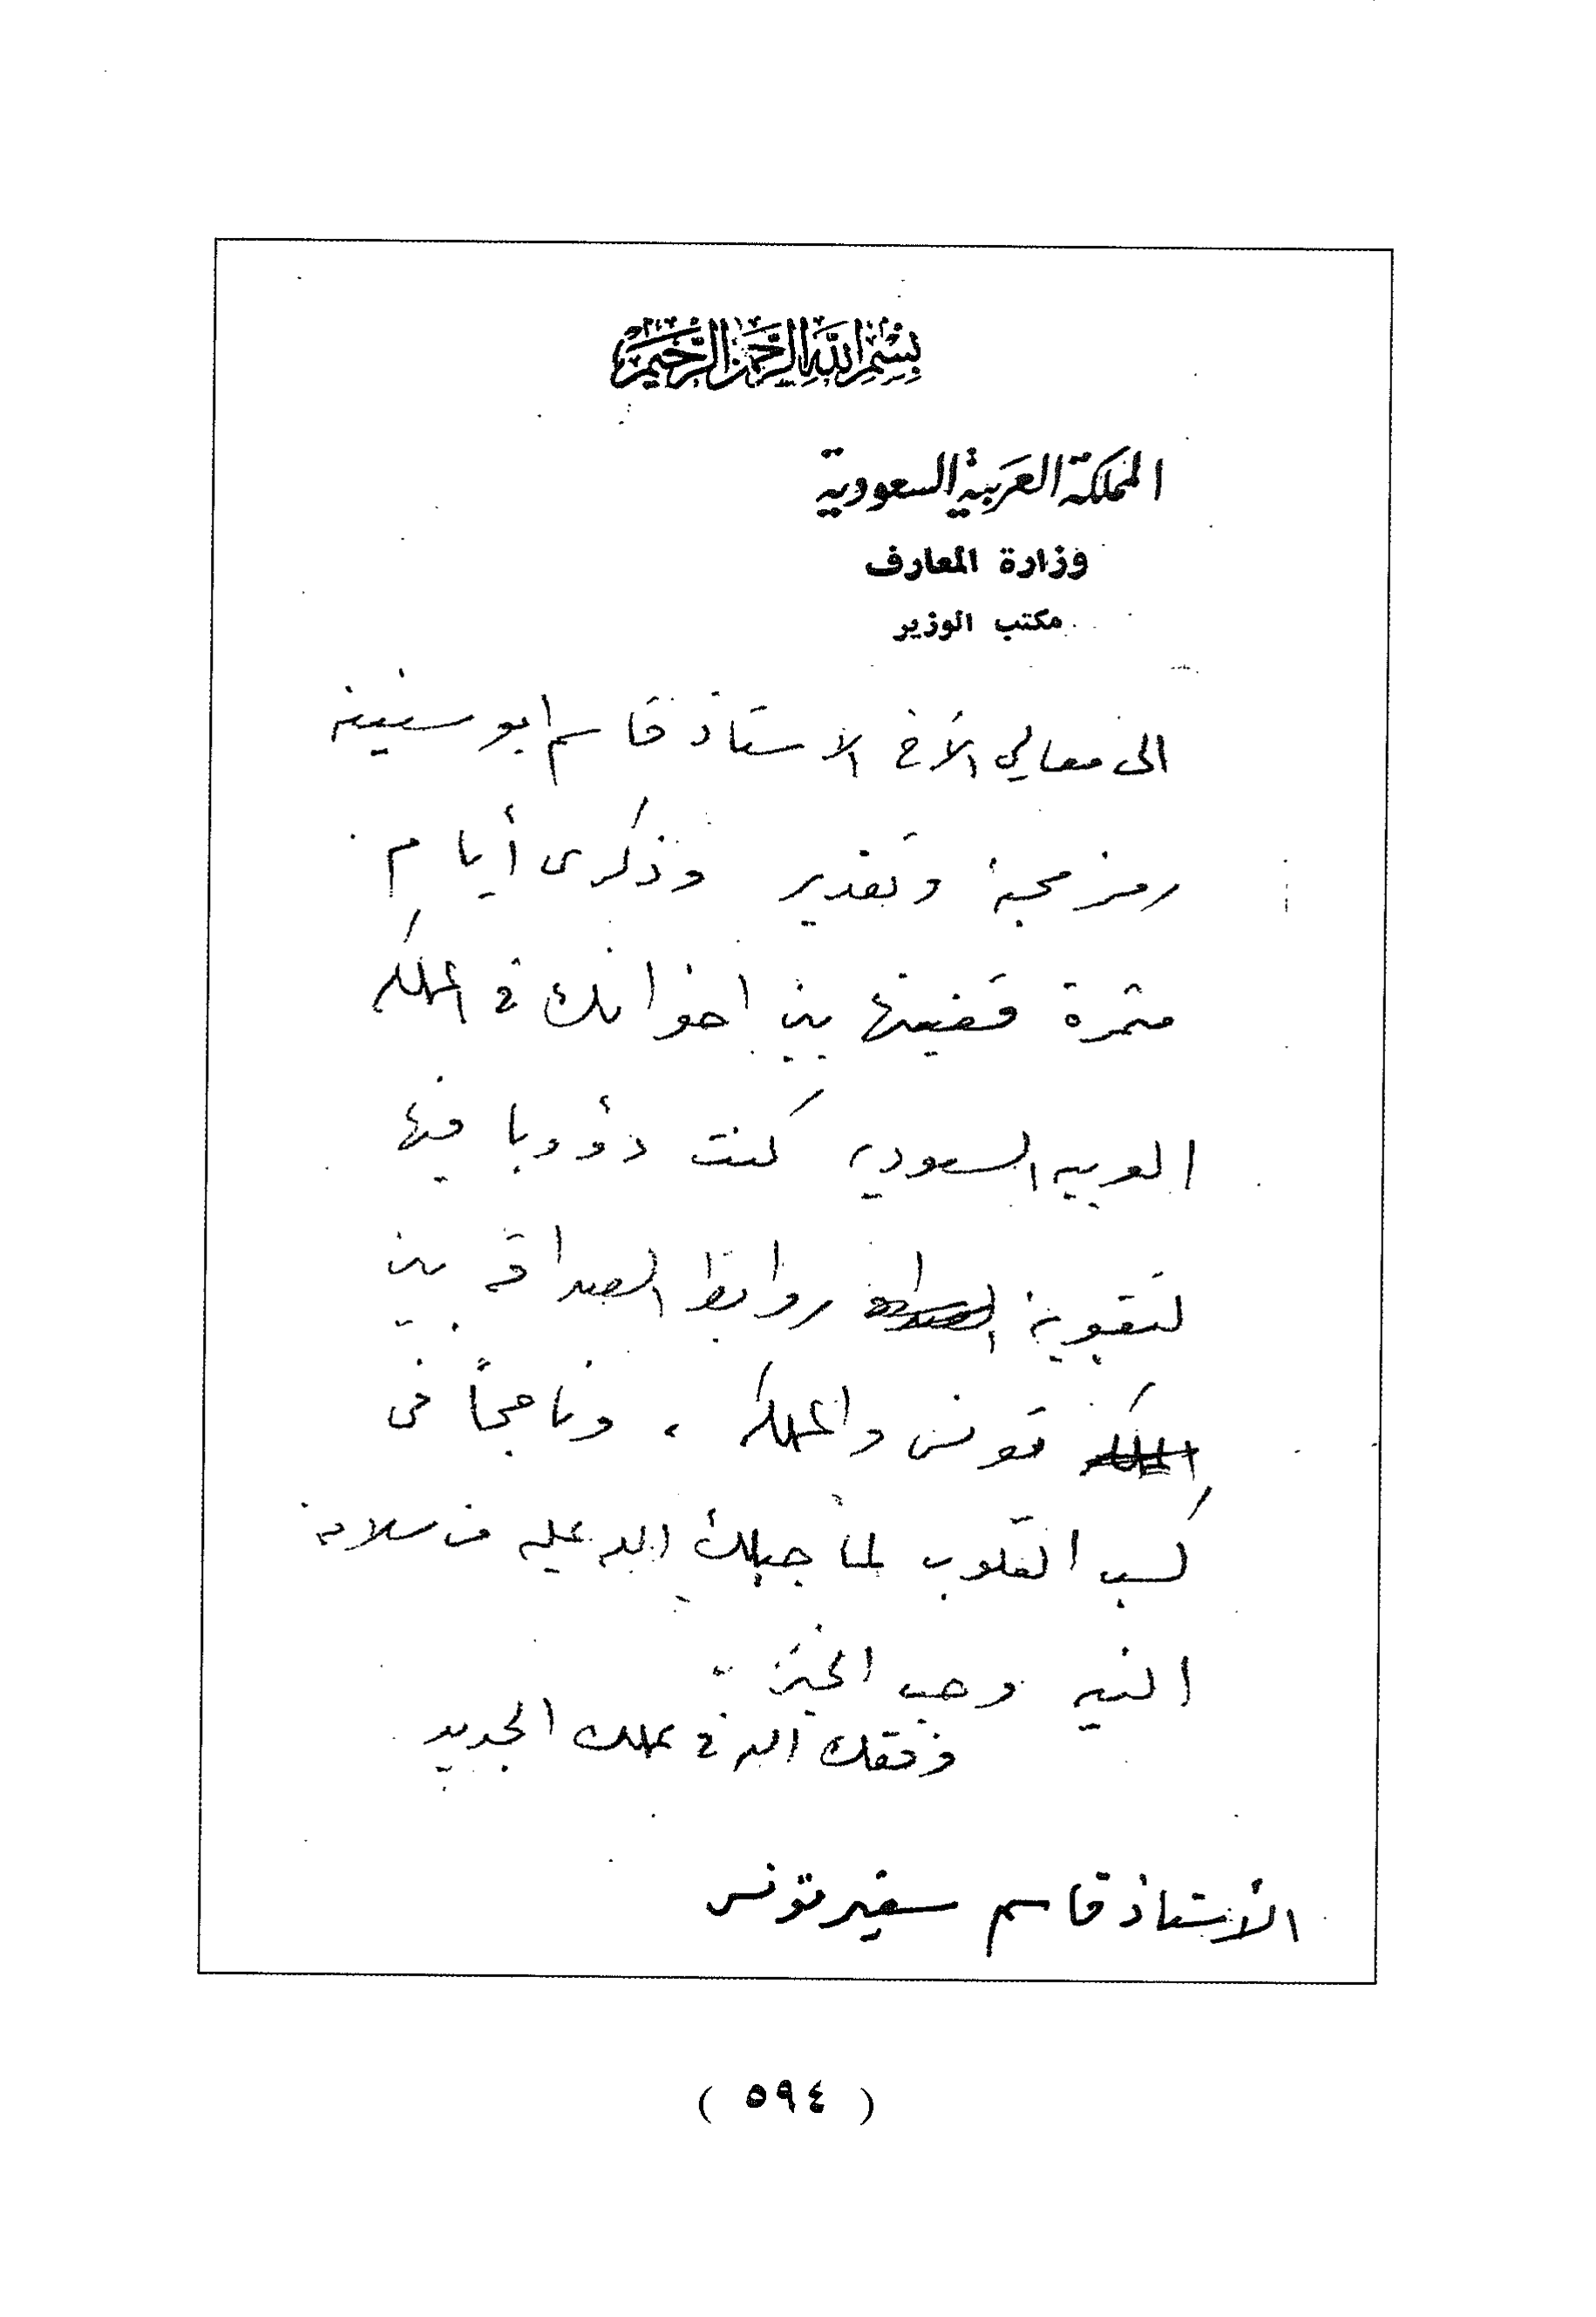 بسم الله الرحمن الرحيم
المملكة العربية السعودية
وزارة المعارف
مكتب الوزير
الى معالي الأخ الاستاذ قاسم ابو سنينه
رمز محبة وتقدير وذكرى أيام
مثمرة قضيتها بين اخوانك في المملكه
العربيه السعوديه كنت دؤوبا فيها
لتقوية الصداقة روابط الصداقه بين
المملكه تونس والمملكه ، وناجحاً في
كسب القلوب لما جبلك الله عليه من سلامه
النيه وحب الخير
وفقك الله في عملك الجديد
الأستاذ قاسم سفير تونس
( ٥٩٤ )